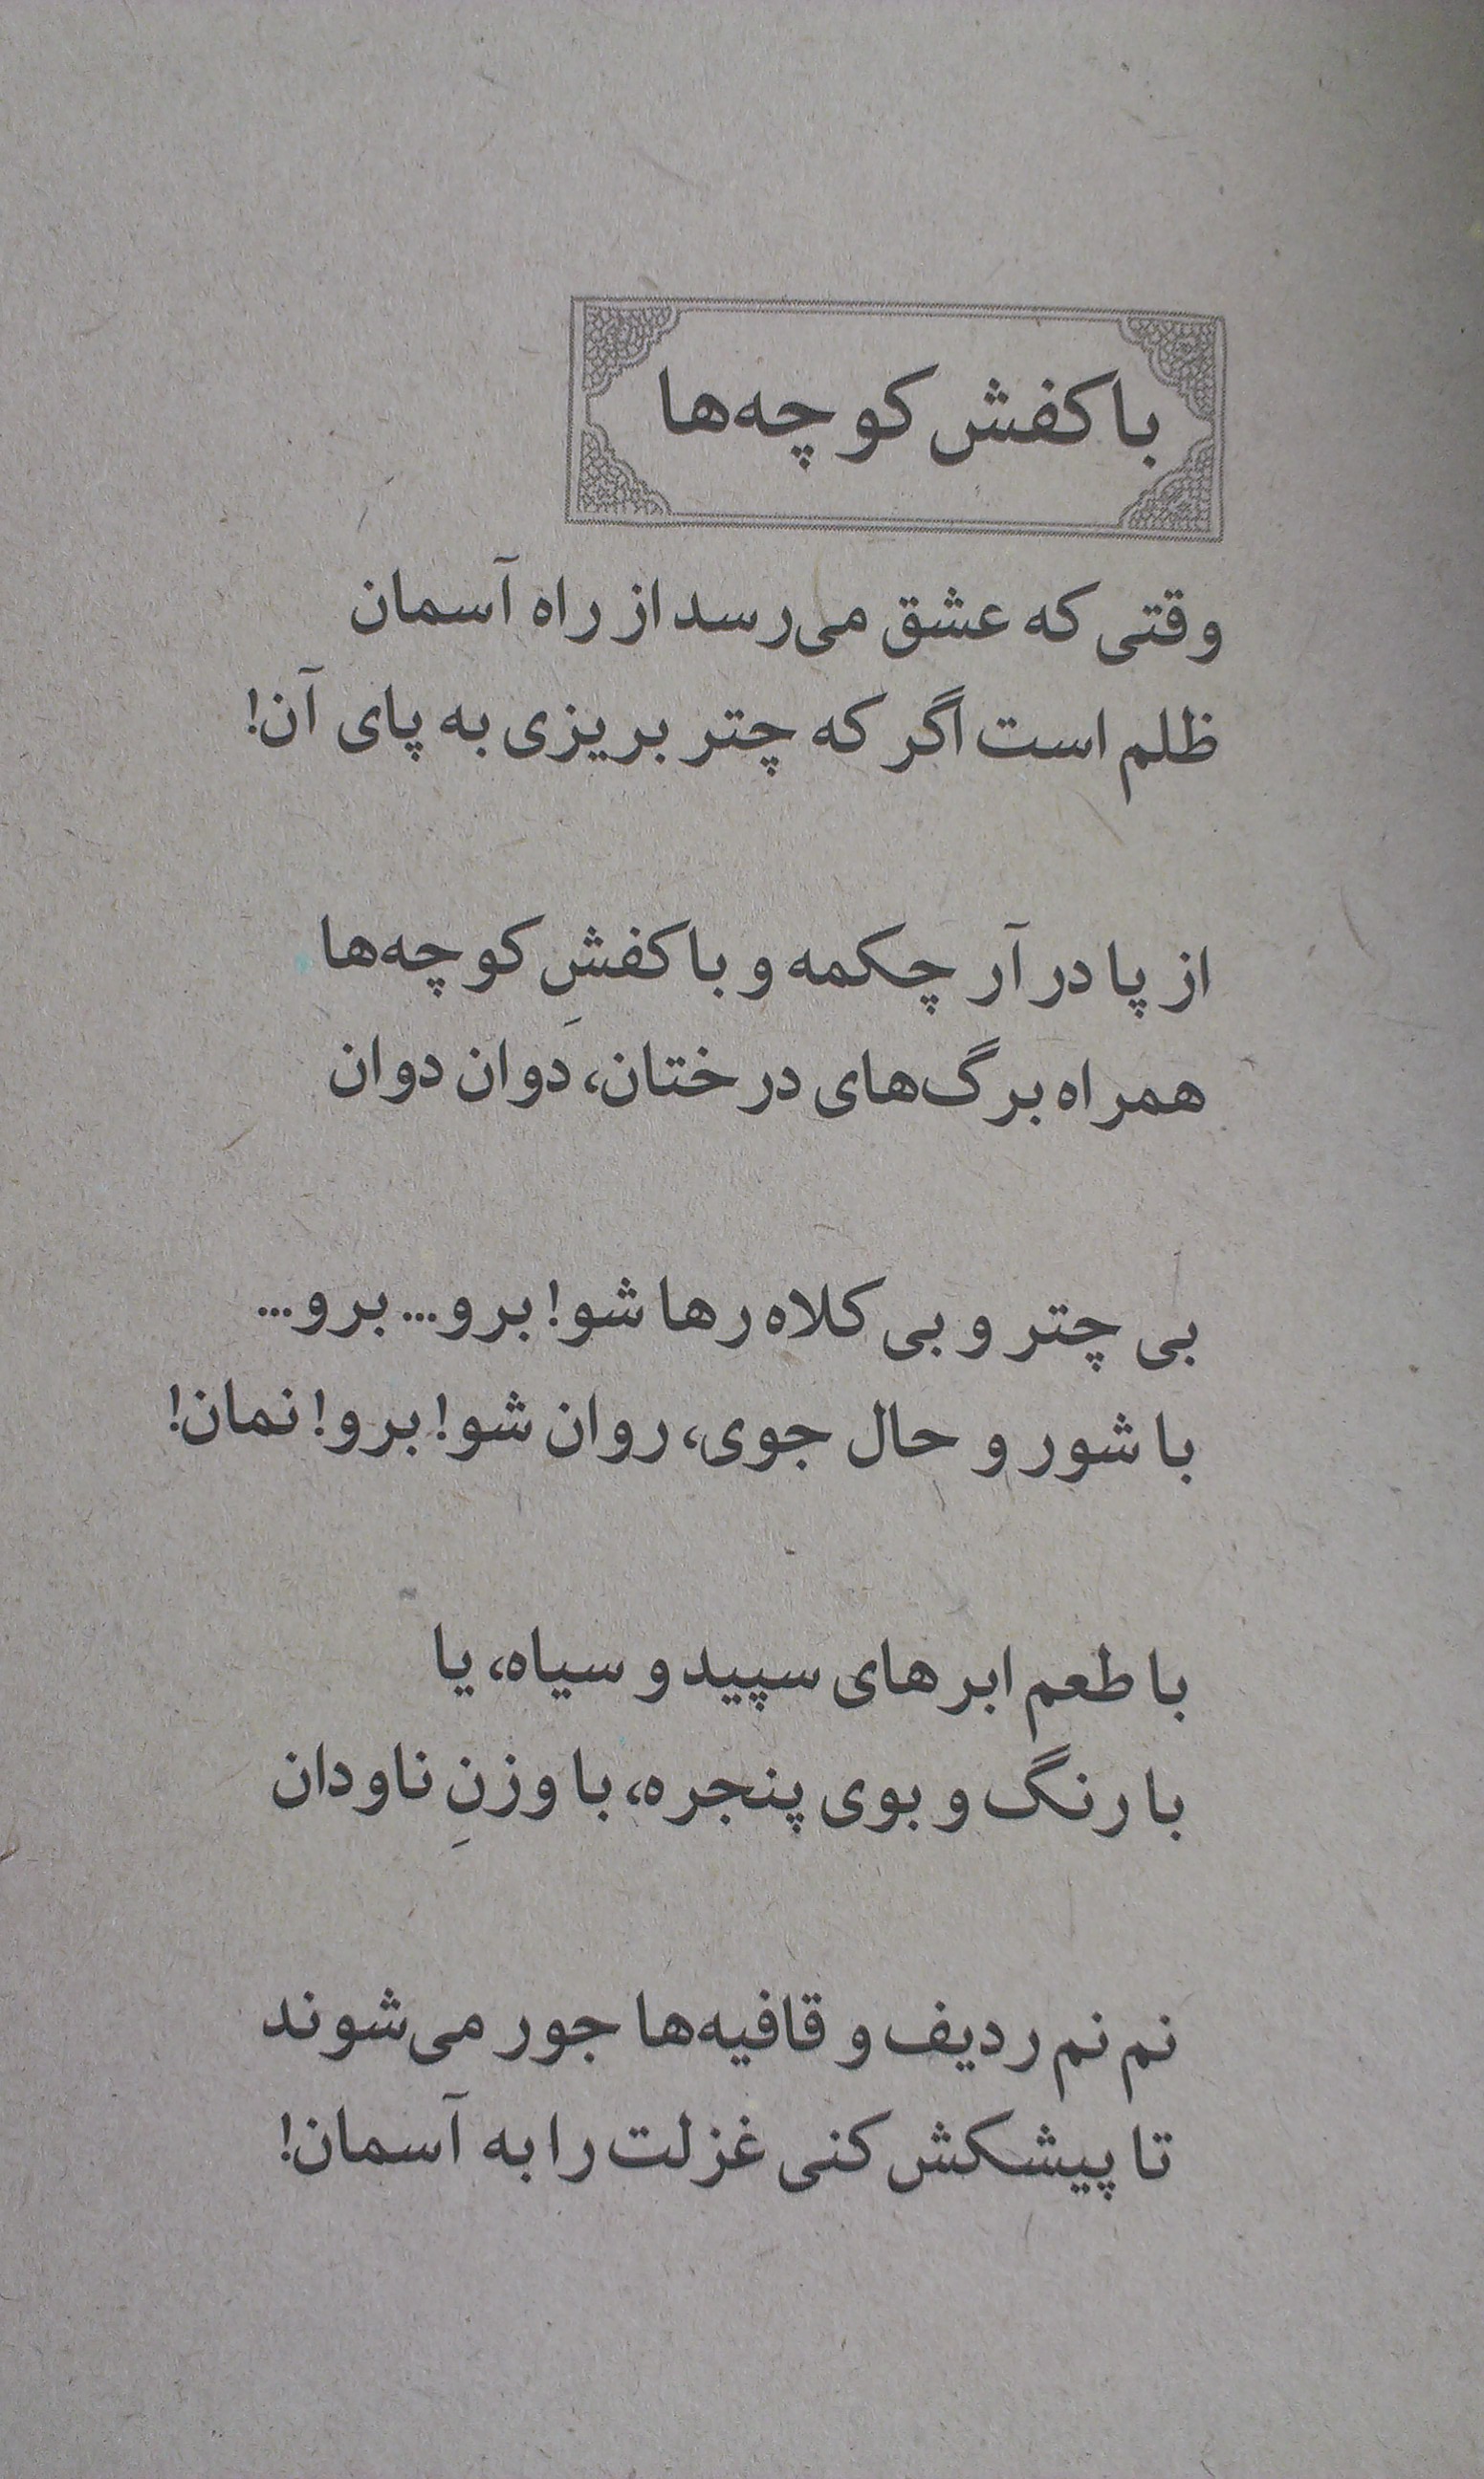 با کفش کوچه‌ها
وقتی که عشق می‌رسد از راه آسمان
ظلم است اگر که چتر بریزی به پای آن!
از پا در آر چکمه و با کفشِ کوچه‌ها
همراه برگ‌های درختان، دوان دوان
بی چتر و بی کلاه رها شو! برو... برو...
با شور و حال جوی، روان شو! برو! نمان!
با طعم ابرهای سپید و سیاه، یا
با رنگ و بوی پنجره، با وزنِ ناودان
نم نم ردیف و قافیه‌ها جور می‌شوند
تا پیشکش کنی غزلت را به آسمان!